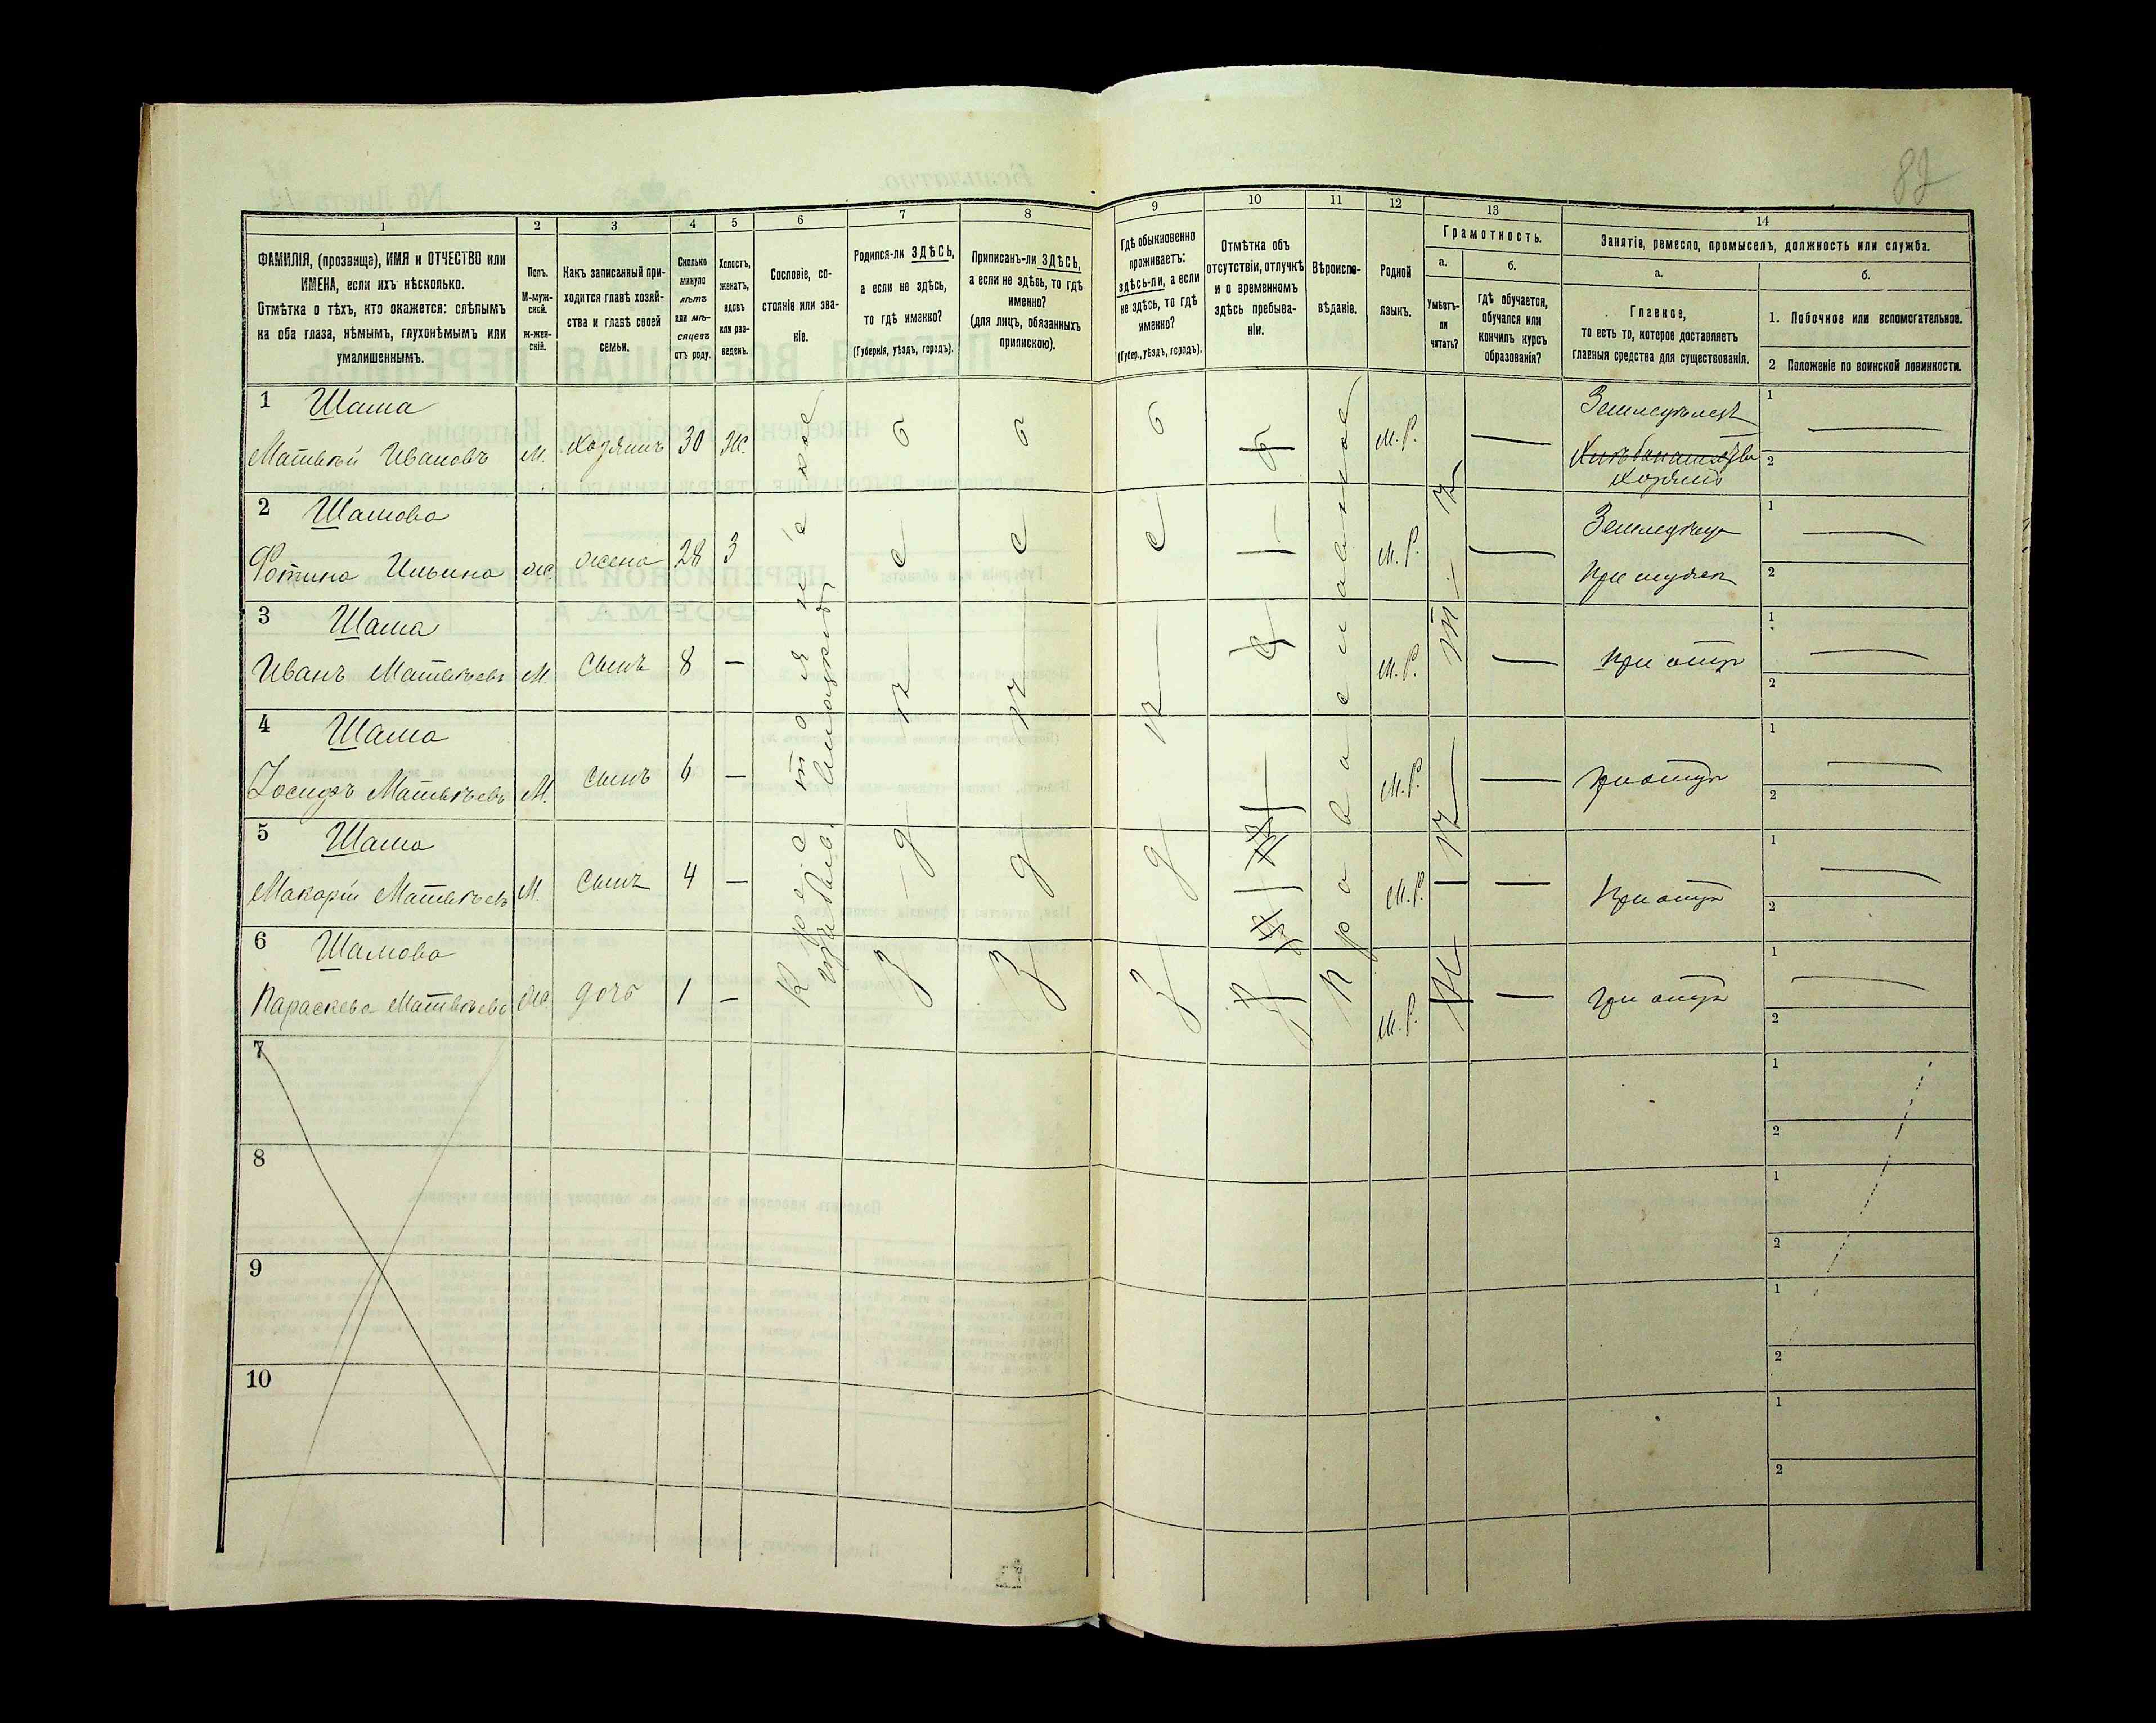 82
1
2
3
4
5
6
7
8
9
10
11
12
13
14
ФАМИЛІЯ, (прозвище), ИМЯ и ОТЧЕСТВО или
ИМЕНА, если ихъ нѣсколько.
Отмѣтка о тѣхъ, кто окажется: слѣпымъ
на оба глаза, нѣмымъ, глухонѣмымъ или
умалишеннымъ.
Полъ.
М-муж-
ской.
Ж-жен-
скій.
Какъ записанный при-
ходится главѣ хозяй-
ства и главѣ своей
семьи.
Сколько
минуло
лѣтъ
или мѣ-
сяцевъ
отъ роду.
Холостъ,
женатъ,
вдовъ
или раз-
веденъ.
Сословіе, со-
стояніе или зва-
ніе.
Родился-ли ЗДѢСЬ,
а если не здѣсь,
то гдѣ именно?
(Губернія, уѣздъ, городъ).
Приписанъ-ли ЗДѢСЬ,
а если не здѣсь, то гдѣ
именно?
(для лицъ, обязанныхъ
припискою).
Гдѣ обыкновенно
проживаетъ:
здѣсь-ли, а если
не здѣсь, то гдѣ
именно?
(Губер., уѣздъ, городъ).
Отмѣтка объ
отсутствіи, отлучкѣ
и о временномъ
здѣсь пребыва-
ніи.
Вѣроиспо-
вѣданіе.
Родной
языкъ.
Грамотность.
а.
Умѣетъ-
ли
читать?
б.
Гдѣ обучается,
обучался или
кончилъ курсъ
образованія?
Занятіе, ремесло, промыселъ, должность или служба.
а.
Главное,
то есть то, которое доставляетъ
главныя средства для существованія.
б.
1. Побочное или вспомогательное.
2 Положеніе по воинской повинности.
1 Шама
Матвѣй Ивановъ м. хозяинъ 30 ж. м. р. Земледѣлецъ
хозяинъ
1
2
2 Шамова
Фотина Ильина ж жена 28 З м. р.
1
2
3 Шама
Иванъ Матвѣевъ м. сынъ 8 — м. р. — при отцѣ
1
2
4 Шама
Іосифъ Матвѣевъ м. сынъ 6 — м. р. — при отцѣ
1
2
5 Шама
Макарій Матвѣевъ м. сынъ 4 — м. р. — — при отцѣ
1
2
6 Шамова
Параскева Матвѣева ж. дочь 1 — м. р. — при отцѣ
1
2
здѣсь
здѣсь
здѣсь
православное
нѣтъ
7
1
2
8
1
2
9
1
2
10
1
2